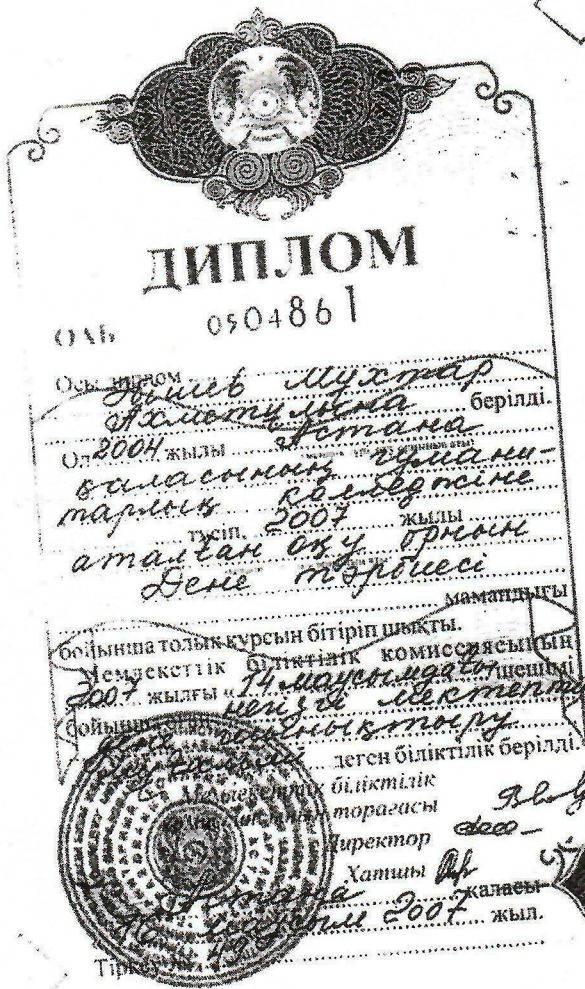 ДИПЛОМ
ОАБ 0504861
Осы диплом
Мухтар
берілді.
Ол 2004 жылы Астана
қаласының гумани-
тарлық колледжіне
түсіп, 2007 жылы
аталған оқу орнын
Дене тәрбиесі
мамандығы
бойынша толық курсын бітіріп шықты.
Мемлекеттік біліктілік комиссиясының
2007 жылғы «14 маусымдағы шешімі
бойынша негізгі мектептің
дене шынықтыру
деген біліктілік берілді.
Мемлекеттік біліктілік
төрағасы
Директор
Хатшы
Астана қаласы
маусым 2007 жыл.